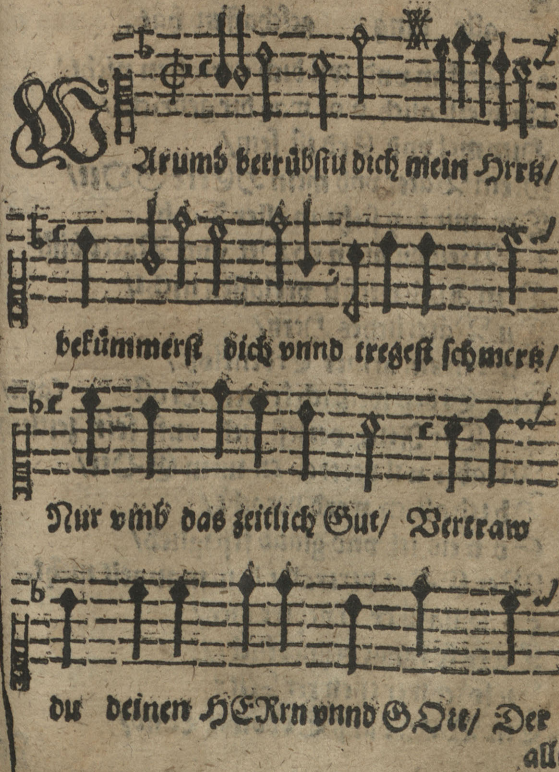 WArumb betrübstu dich mein Hertz/
bekümmerst dich vnnd tregest schmertz/
Nur vmb das zeitlich Gut/ Vertraw
du deinen HERrn vnnd GOtt/ Der
all